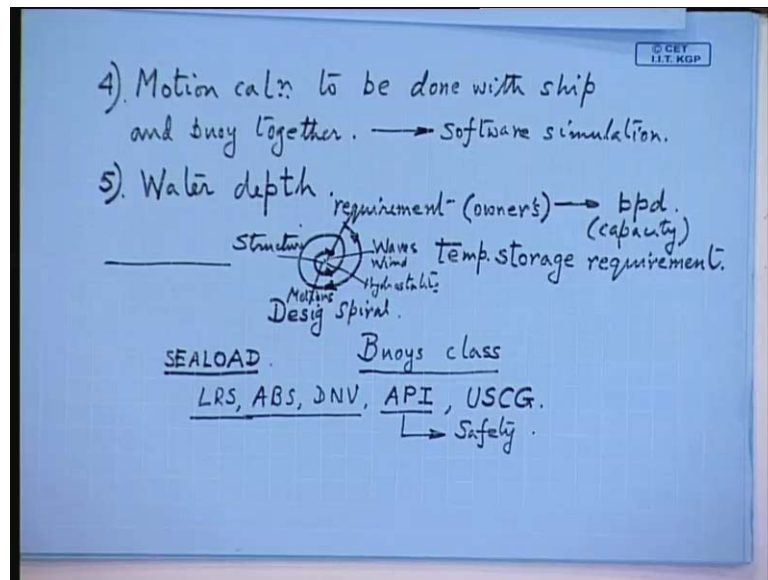 © CET
I.I.T. KGP
4). Motion caln. to be done with ship
and buoy together. → Software simulation.
5). Water depth.
requirement (owner's) → bpd.
(capacity)
Structure
Waves
Wind
temp. storage requirement.
Motions
Desig Spiral.
SEALOAD.
Buoys class
LRS, ABS, DNV, API, USCG.
→ Safety.